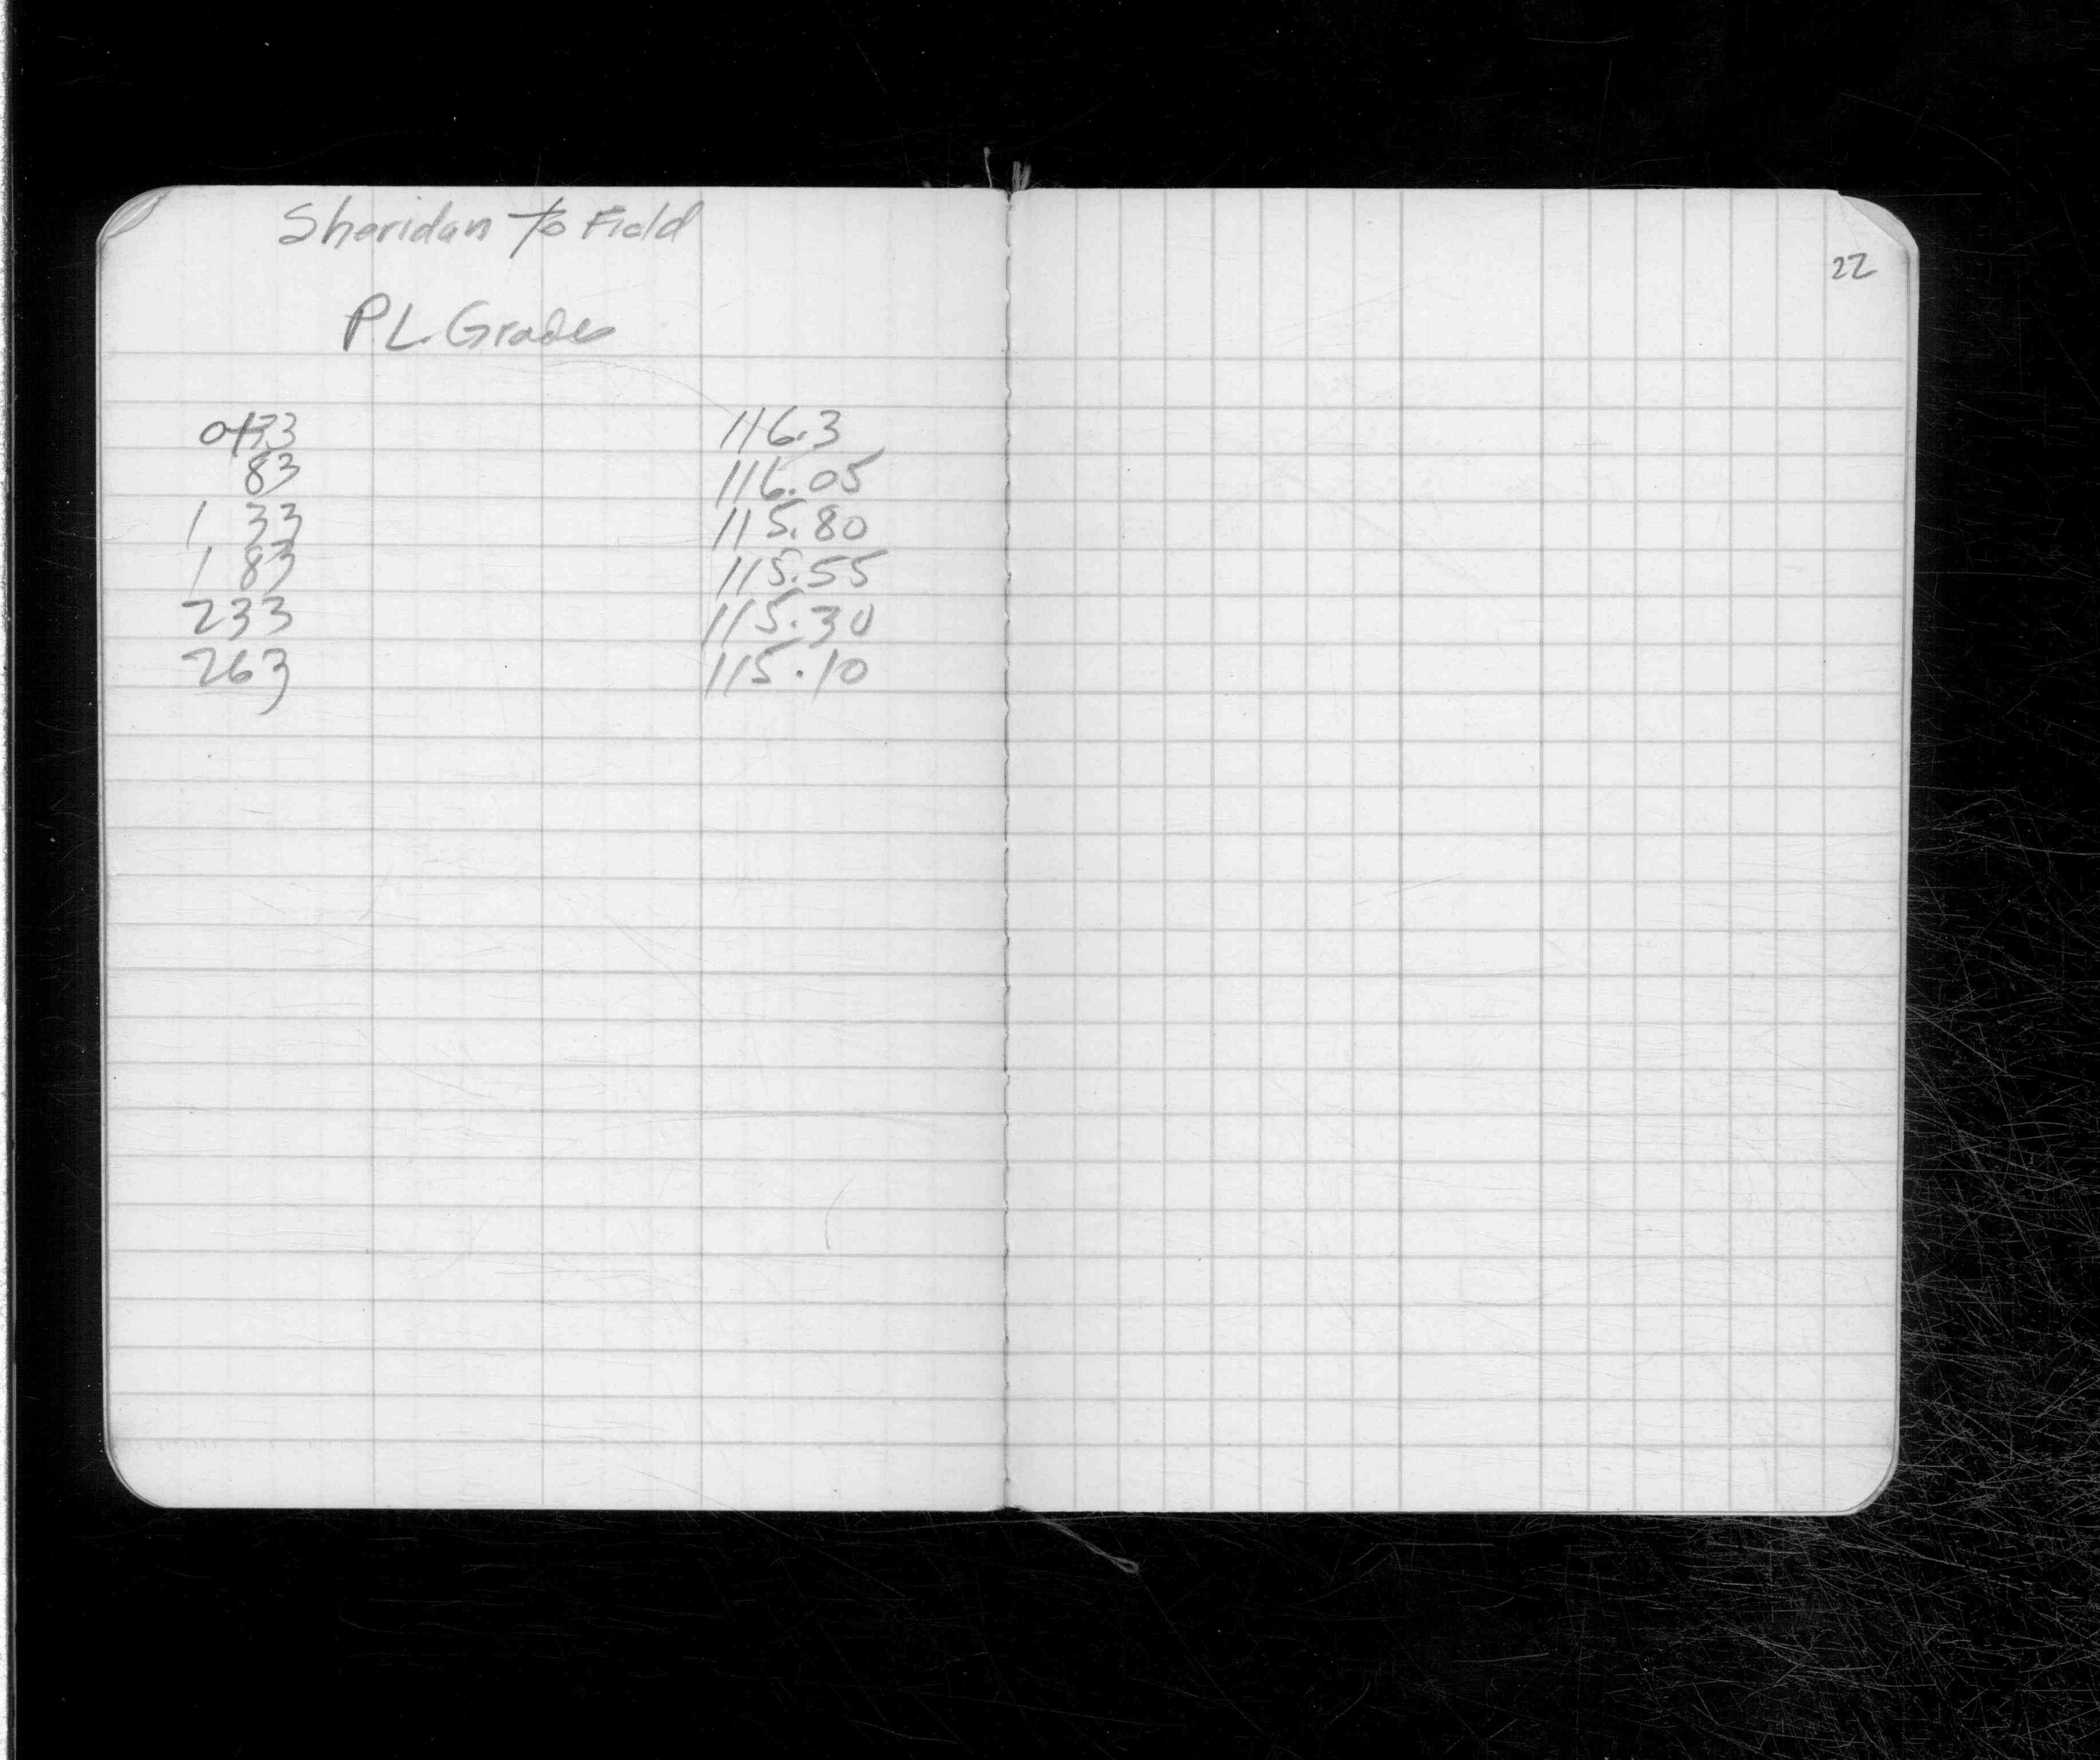 Sheridan to Field
PL. Grades
0+33 116.3
83 116.05
1 33 115.80
1 83 115.55
233 115.30
263 115.10
22